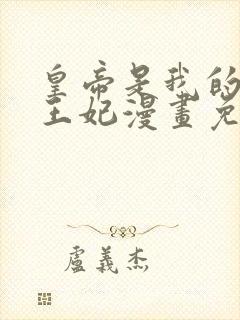 皇帝是我的
王妃漫畫免
盧義杰